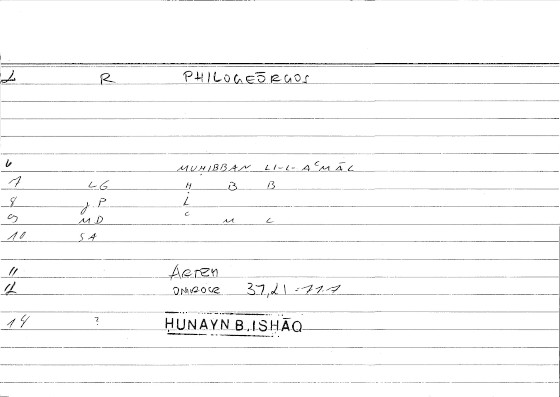 2 R PHILOGEŌRGOS
6 MUḤIBBAN LI-L-AʿMĀL
7 LG Ḥ B B
8 gP L
9 MD ʿ M L
10 SA
11 Artem
12 ONIROCR 37,21 = 111
14 ? ḤUNAYN B. ISḤĀQ